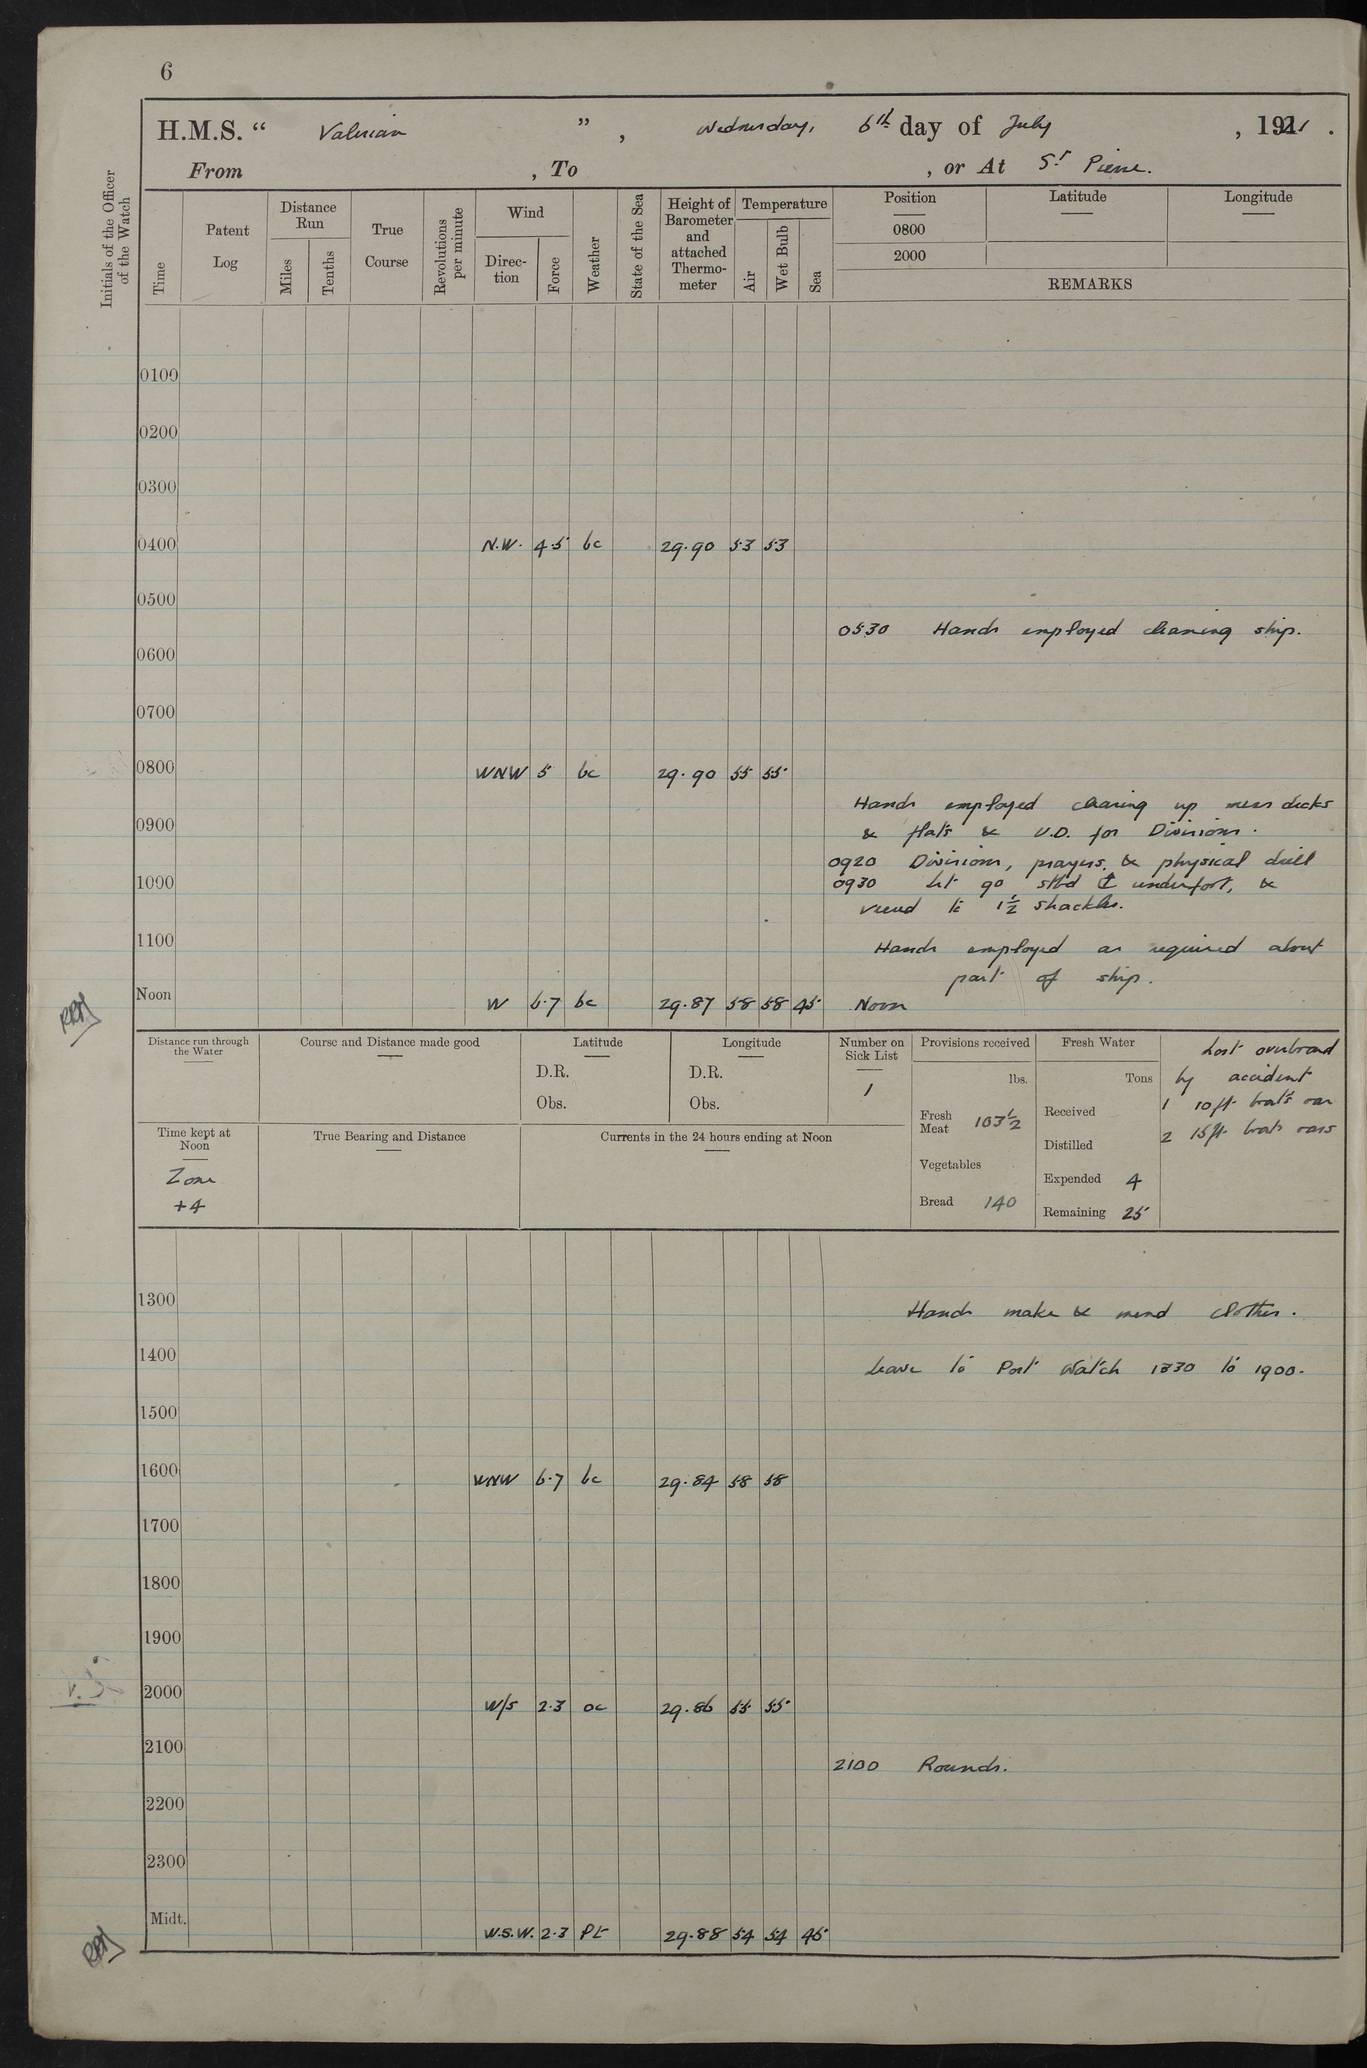 6
H.M.S. “ Valerian ” , Wednesday, 6th day of July , 1921 .
From , To , or At St Pierre.
Initials of the Officer of the Watch
Time
Patent Log
Distance Run
Miles
Tenths
True Course
Revolutions per minute
Wind
Direc-tion
Force
Weather
State of the Sea
Height of Barometer and attached Thermo-meter
Temperature
Air
Wet Bulb
Sea
Position Latitude Longitude
0800
2000
REMARKS
0100
0200
0300
0400 N.W. 4.5 bc 29.90 53 53
0500
0530 Hands employed cleaning ship.
0600
0700
0800 WNW 5 bc 29.90 55 55
Hands employed clearing up mess decks
0900 & flats & U.D. for Divisions.
0920 Divisions, prayers, & physical drill
1090 0930 Let go stbd ⚓ underfoot, &
veered to 1½ shackles.
1100 Hands employed as required about
part of ship.
Noon W 6.7 bc 29.87 58 58 45 Noon
Distance run through the Water
Course and Distance made good
Latitude
D.R.
Obs.
Longitude
D.R.
Obs.
Number on Sick List
1
Provisions received
lbs.
Fresh Meat 103½
Vegetables
Bread 140
Fresh Water
Tons
Received
Distilled
Expended 4
Remaining 25
Lost overboard
by accident
1 10ft boat's oar
2 15ft boats oars
Time kept at Noon
Zone
+4
True Bearing and Distance
Currents in the 24 hours ending at Noon
1300 Hands make & mend clothes.
1400 Leave to Port Watch 1330 to 1900.
1500
1600 WNW 6.7 bc 29.84 58 58
1700
1800
1900
2000 W/S 2.3 oc 29.86 55 55
2100 2100 Rounds.
2200
2300
Midt. W.S.W. 2.3 29.88 54 54 45